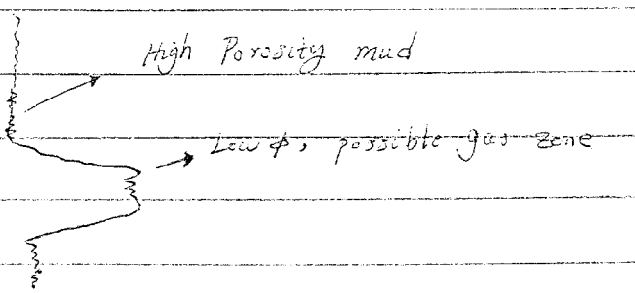 High Porosity mud
Low φ, possible gas zone